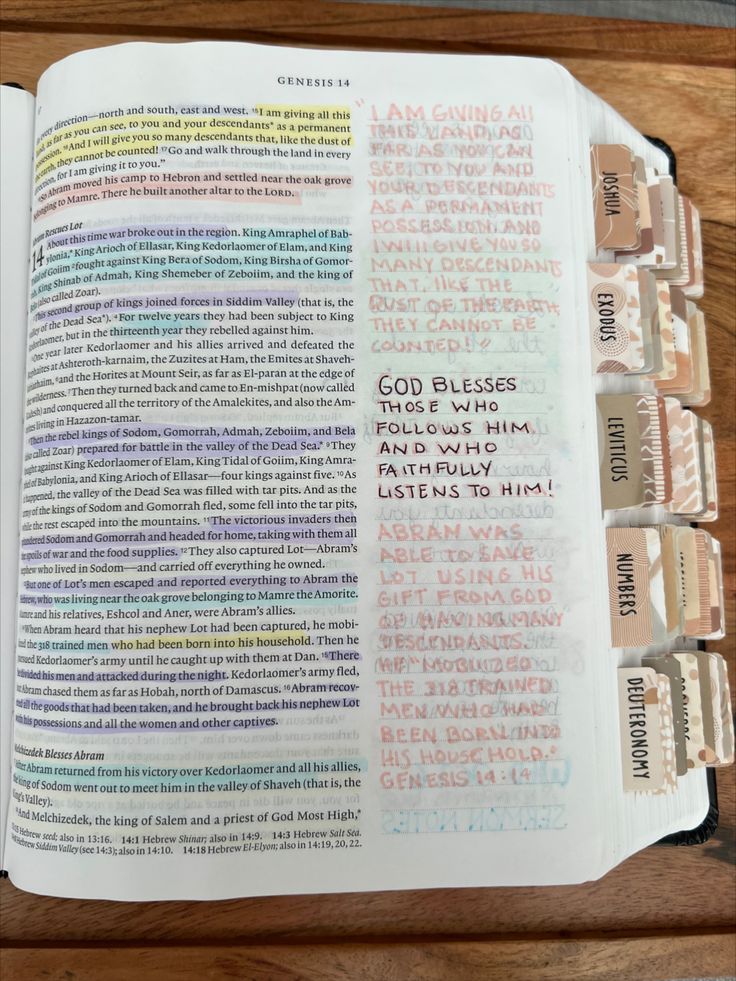 GENESIS 14
every direction—north and south, east and west. ¹⁵I am giving all this
as far as you can see, to you and your descendants* as a permanent
¹⁶And I will give you so many descendants that, like the dust of
earth, they cannot be counted! ¹⁷Go and walk through the land in every
direction, for I am giving it to you.”
¹⁸So Abram moved his camp to Hebron and settled near the oak grove
belonging to Mamre. There he built another altar to the LORD.
Abram Rescues Lot
14 About this time war broke out in the region. King Amraphel of Bab-
ylonia,* King Arioch of Ellasar, King Kedorlaomer of Elam, and King
Tidal of Goiim ²fought against King Bera of Sodom, King Birsha of Gomor-
rah, King Shinab of Admah, King Shemeber of Zeboiim, and the king of
Bela (also called Zoar).
³This second group of kings joined forces in Siddim Valley (that is, the
valley of the Dead Sea*). ⁴For twelve years they had been subject to King
Kedorlaomer, but in the thirteenth year they rebelled against him.
⁵One year later Kedorlaomer and his allies arrived and defeated the
Rephaites at Ashteroth-karnaim, the Zuzites at Ham, the Emites at Shaveh-
kiriathaim, ⁶and the Horites at Mount Seir, as far as El-paran at the edge of
the wilderness. ⁷Then they turned back and came to En-mishpat (now called
Kadesh) and conquered all the territory of the Amalekites, and also the Am-
orites living in Hazazon-tamar.
⁸Then the rebel kings of Sodom, Gomorrah, Admah, Zeboiim, and Bela
(also called Zoar) prepared for battle in the valley of the Dead Sea.* ⁹They
fought against King Kedorlaomer of Elam, King Tidal of Goiim, King Amra-
phel of Babylonia, and King Arioch of Ellasar—four kings against five. ¹⁰As
it happened, the valley of the Dead Sea was filled with tar pits. And as the
army of the kings of Sodom and Gomorrah fled, some fell into the tar pits,
while the rest escaped into the mountains. ¹¹The victorious invaders then
plundered Sodom and Gomorrah and headed for home, taking with them all
the spoils of war and the food supplies. ¹²They also captured Lot—Abram’s
nephew who lived in Sodom—and carried off everything he owned.
¹³But one of Lot’s men escaped and reported everything to Abram the
Hebrew, who was living near the oak grove belonging to Mamre the Amorite.
Mamre and his relatives, Eshcol and Aner, were Abram’s allies.
¹⁴When Abram heard that his nephew Lot had been captured, he mobi-
lized the 318 trained men who had been born into his household. Then he
pursued Kedorlaomer’s army until he caught up with them at Dan. ¹⁵There
he divided his men and attacked during the night. Kedorlaomer’s army fled,
but Abram chased them as far as Hobah, north of Damascus. ¹⁶Abram recov-
ered all the goods that had been taken, and he brought back his nephew Lot
with his possessions and all the women and other captives.
Melchizedek Blesses Abram
¹⁷After Abram returned from his victory over Kedorlaomer and all his allies,
the king of Sodom went out to meet him in the valley of Shaveh (that is, the
King’s Valley).
¹⁸And Melchizedek, the king of Salem and a priest of God Most High,*
13:15 Hebrew seed; also in 13:16. 14:1 Hebrew Shinar; also in 14:9. 14:3 Hebrew Salt Sea.
Hebrew Siddim Valley (see 14:3); also in 14:10. 14:18 Hebrew El-Elyon; also in 14:19, 20, 22.
"I AM GIVING All
THIS LAND, AS
FAR AS YOU CAN
SEE, TO YOU AND
YOUR DESCENDANTS
AS A PERMANENT
POSSESSION. AND
I WILL GIVE YOU SO
MANY DESCENDANTS
THAT, LIKE THE
DUST OF THE EARTH,
THEY CANNOT BE
COUNTED!"
GOD BLESSES
THOSE WHO
FOLLOWS HIM,
AND WHO
FAITHFULLY
LISTENS TO HIM!
ABRAM WAS
ABLE TO SAVE
LOT USING HIS
GIFT FROM GOD
OF HAVING MANY
DESCENDANTS.
HE "MOBILIZED
THE 318 TRAINED
MEN WHO HAD
BEEN BORN INTO
HIS HOUSEHOLD."
GENESIS 14:14
SERMON NOTES
JOSHUA
EXODUS
LEVITICUS
NUMBERS
DEUTERONOMY